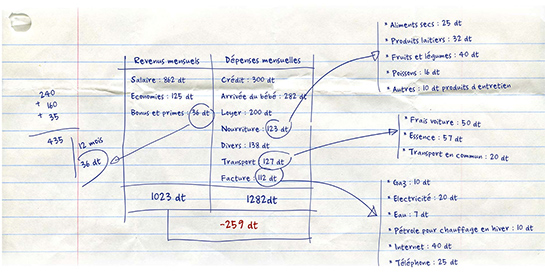 Revenus mensuels
Dépenses mensuelles
Salaire : 862 dt
Economies : 125 dt
Bonus et primes : 36 dt
Crédit : 300 dt
Arrivée du bébé : 282 dt
Loyer : 200 dt
Nourriture : 123 dt
Divers : 138 dt
Transport : 127 dt
Facture : 112 dt
1023 dt
1282dt
-259 dt
240
+ 160
+ 35
435
12 mois
36 dt
* Aliments secs : 25 dt
* Produits laitiers : 32 dt
* Fruits et légumes : 40 dt
* Poissons : 16 dt
* Autres : 10 dt produits d'entretien
* Frais voiture : 50 dt
* Essence : 57 dt
* Transport en commun : 20 dt
* Gaz : 10 dt
* Electricité : 20 dt
* Eau : 7 dt
* Pétrole pour chauffage en hiver : 10 dt
* Internet : 40 dt
* Téléphone : 25 dt